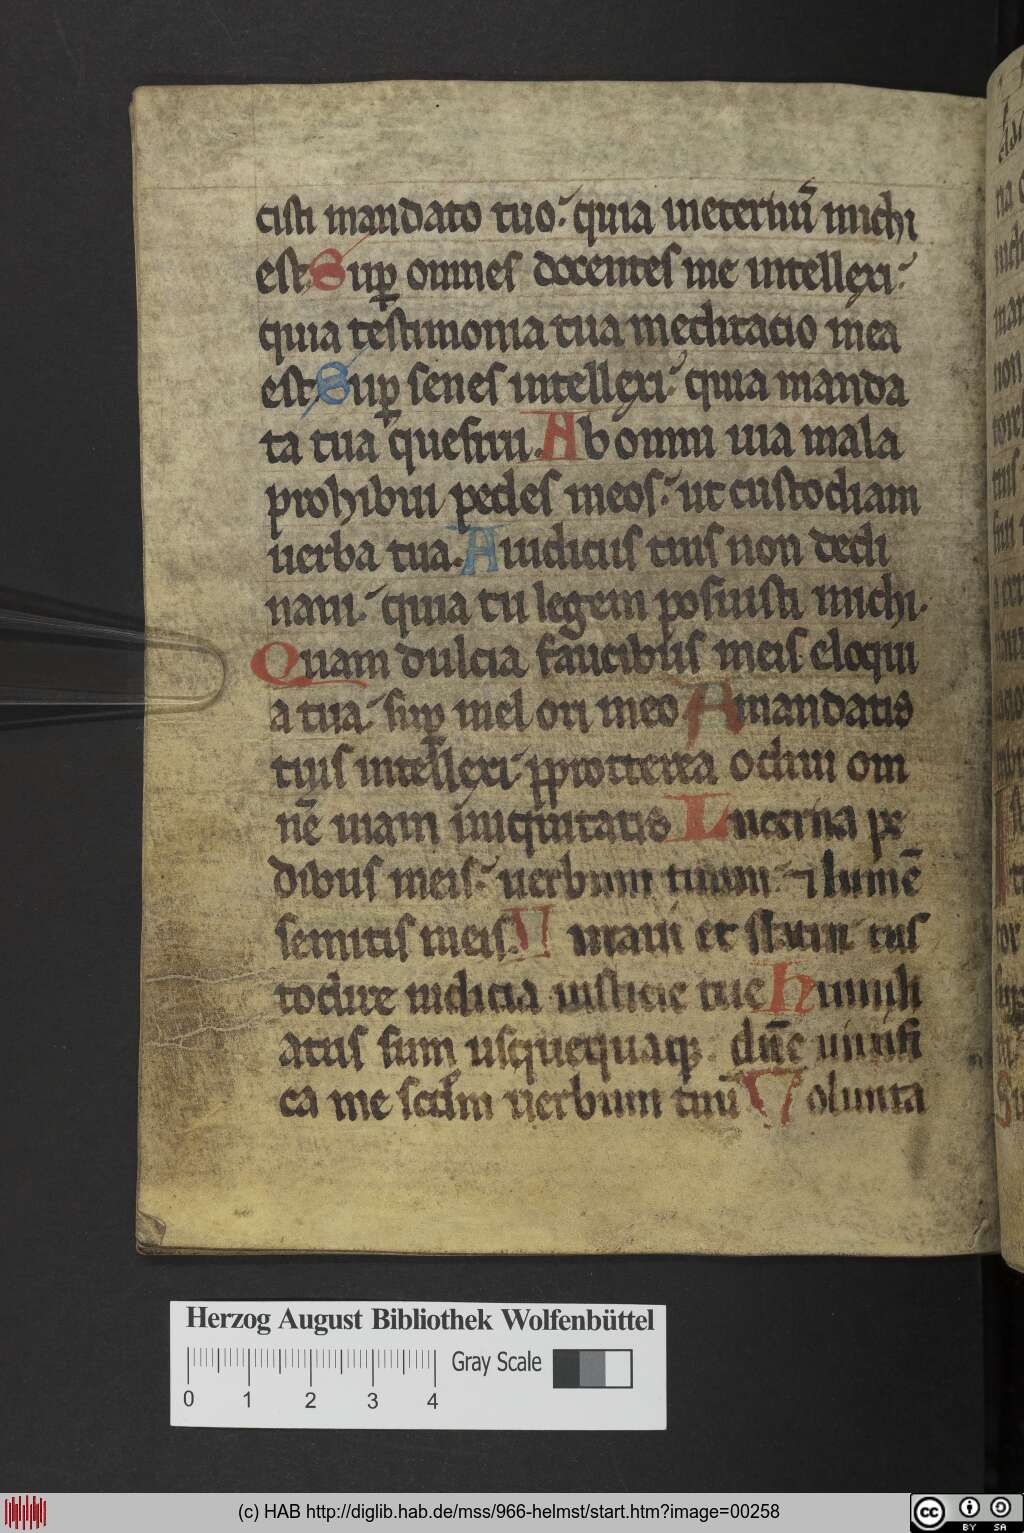 cisti mandato tuo quia ineternū michi
est Sup̱ omnes docentes me intellexi
quia testimonia tua meditatio mea
est Sup̱ senes intellexi quia manda
ta tua quesiui. Ab omni uia mala
prohibui pedes meos ut custodiam
uerba tua. A iudiciis tuis non decli
naui quia tu legem posuisti michi.
Quam dulcia faucibus meis eloqui
a tua sup̱ mel ori meo A mandatis
tuis intellexi p̱p̱rotterea odiui om
nē uiam iniquitatis Lucerna pe
dibus meis uerbum tuum ⁊ lumē
semitis meis. Iuraui et statui cus
todire iudicia iusticie tue humili
atus sum usquequaq; dn̄e uiuifi
ca me scdm̄ uerbum tuū Volunta
Herzog August Bibliothek Wolfenbüttel
Gray Scale
0 1 2 3 4
(c) HAB http://diglib.hab.de/mss/966-helmst/start.htm?image=00258
cc BY SA